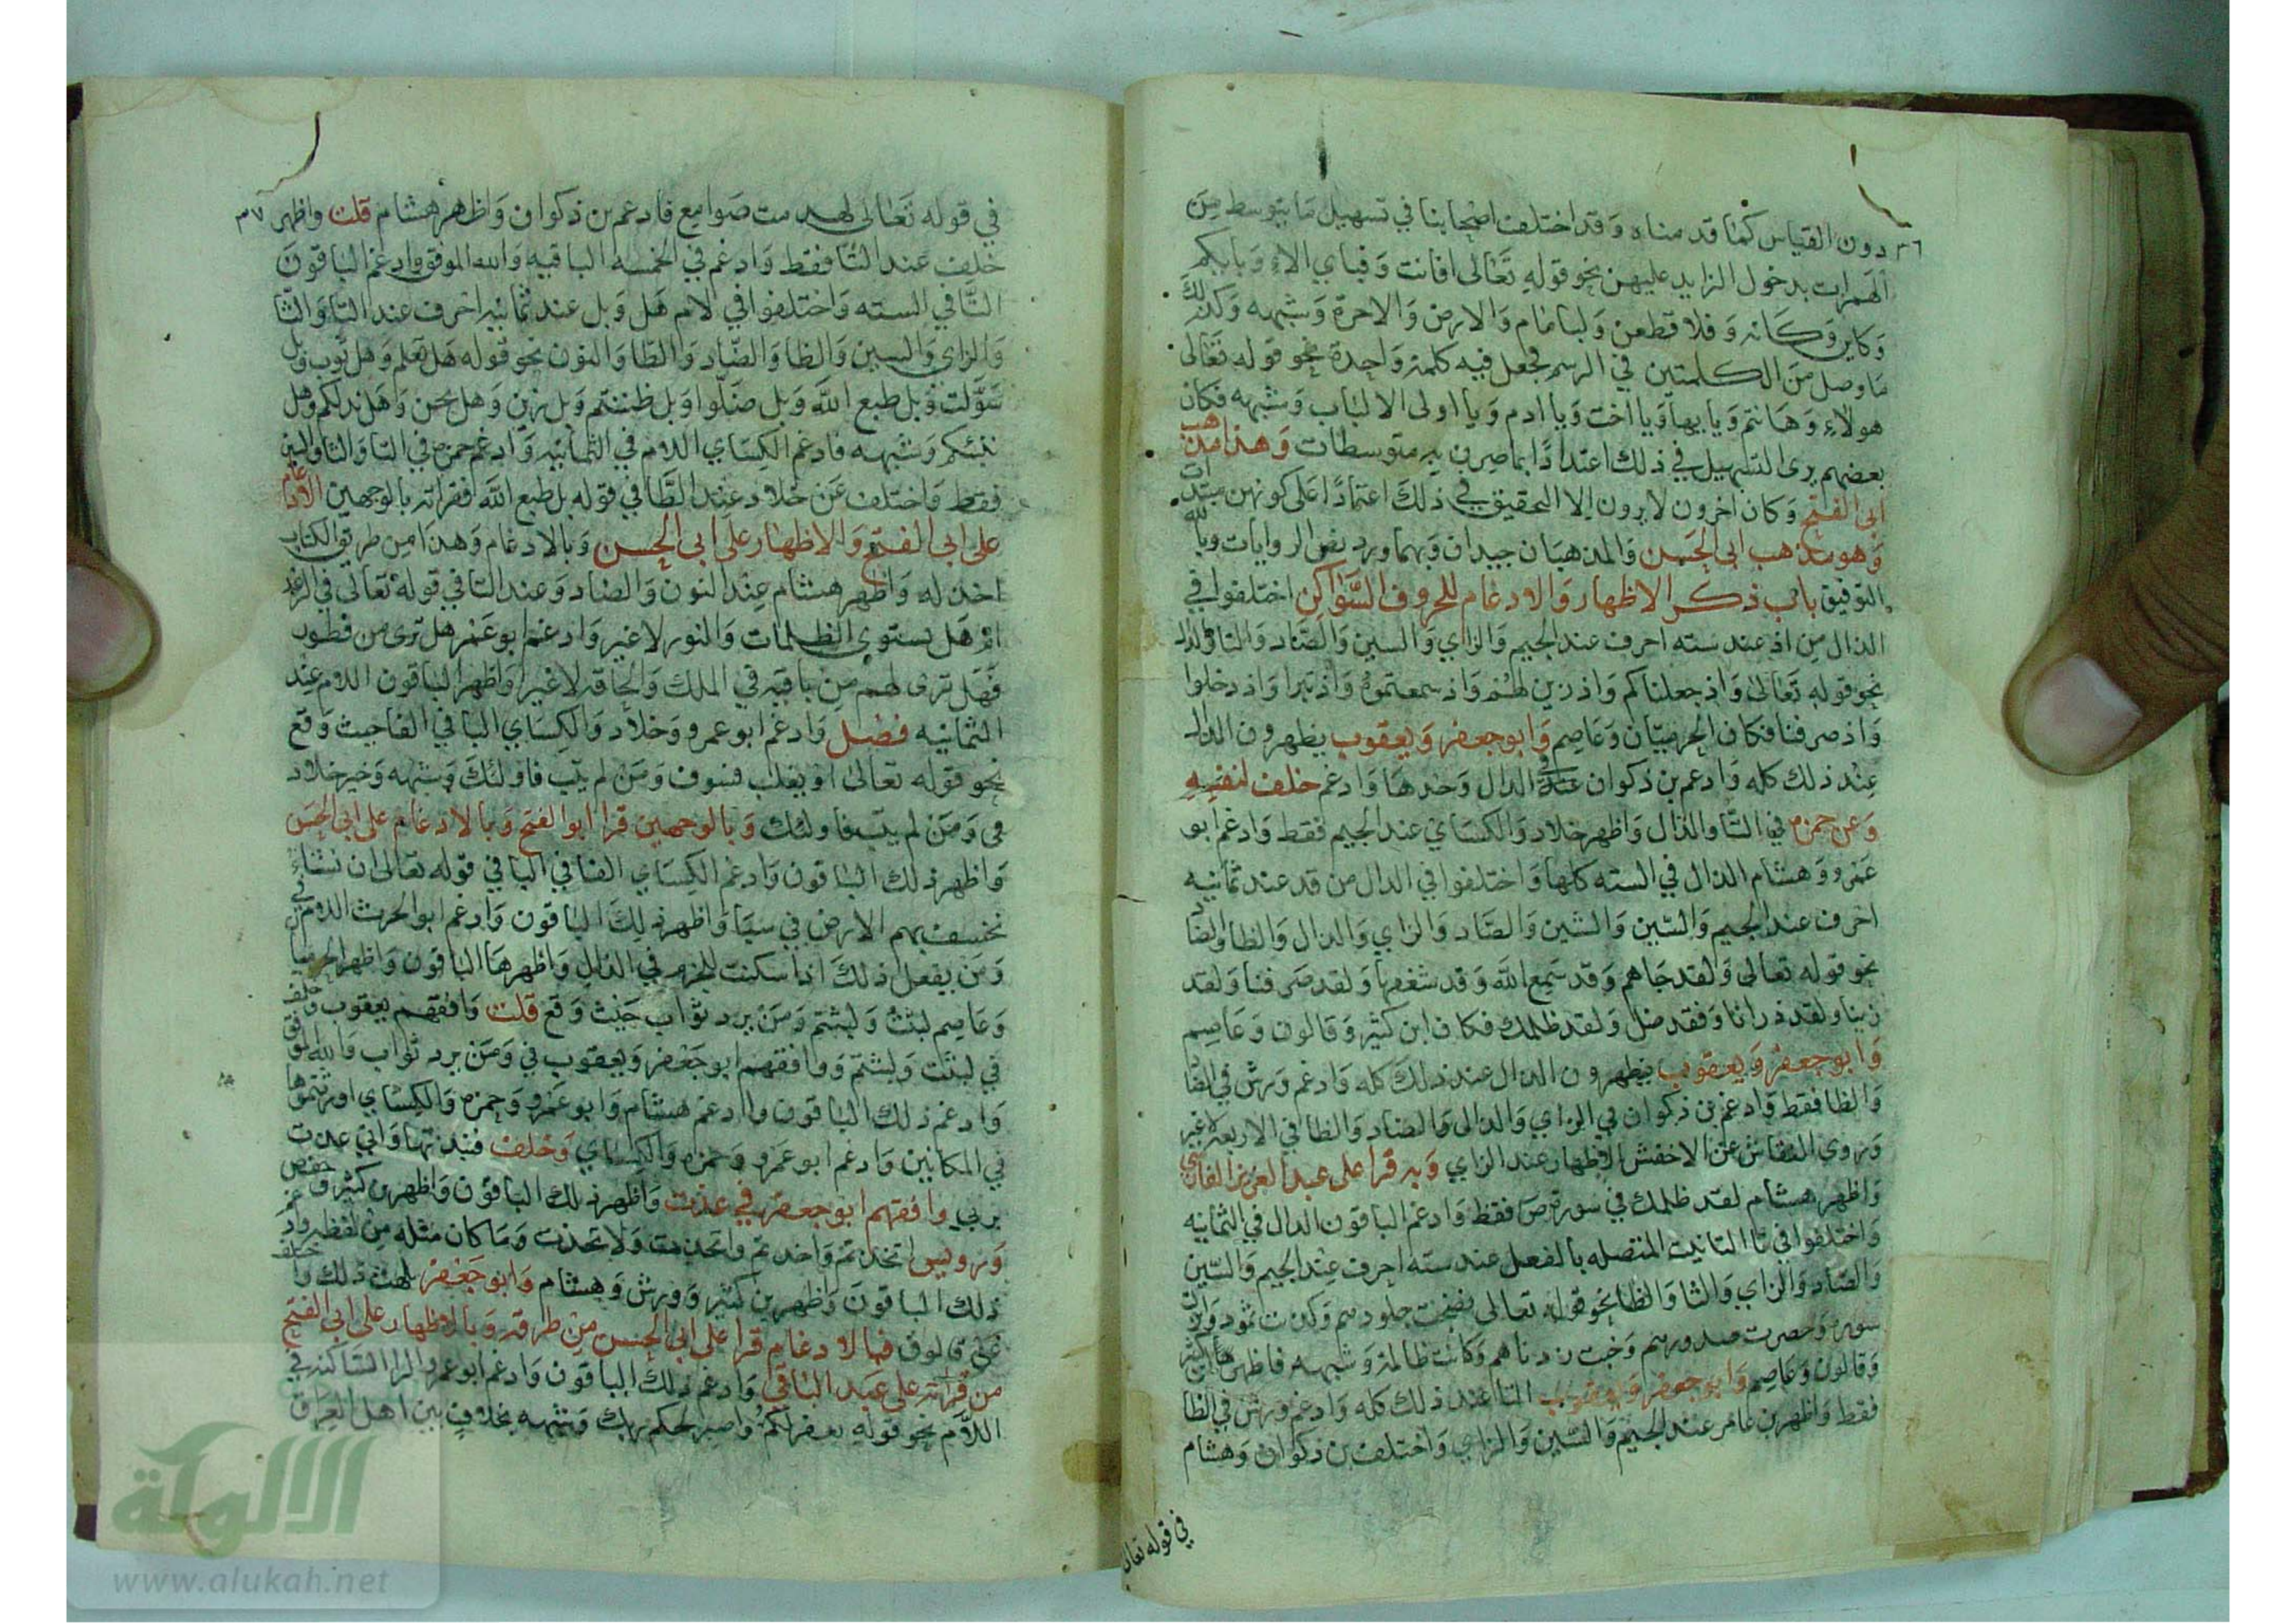 دون القياس كما قدمناه وقد اختلف اصحابنا في تسهيل ما يتوسط من
الهمزات بدخول الزايد عليهن نحو قوله تعالى افانت وفباي الاء وبايكم
وكاين وكانه وفلا قطعن ولبامام والارض والاخرة وشبهه وكذلك
ما وصل من الكلمتين في الرسم فجعل فيه كلمة واحدة نحو قوله تعالى
هولاء وهانتم ويايها ويا اخت ويا ادم ويا اولى الالباب وشبهه فكان
بعضهم يرى التسهيل في ذلك اعتدادا بما صرن به متوسطات وهذا مذهب
ابى الفتح وكان اخرون لا يرون الا التحقيق في ذلك اعتمادا على كونهن مبتدات
وهو مذهب ابى الحسن والمذهبان جيدان وبهما ورد نص الروايات وبالله
التوفيق باب ذكر الاظهار والادغام للحروف السواكن اختلفوا في
الذال من اذ عند سته احرف عند الجيم والزاي والسين والصاد والتا والدال
نحو قوله تعالى واذ جعلناكم واذ زين لهم واذ سمعتموه واذ تبرا واذ دخلوا
واذ صرفنا فكان الحرميان وعاصم وابو جعفر ويعقوب يظهرون الذال
عند ذلك كله وادغم بن ذكوان في الدال وحدها وادغم خلف لنفسه
وعن حمزه في التا والدال واظهر خلاد والكساي عند الجيم فقط وادغم ابو
عمرو وهشام الذال في السته كلها واختلفوا في الدال من قد عند ثمانيه
احرف عند الجيم والسين والشين والصاد والزاي والذال والظا والضاد
نحو قوله تعالى ولقد جاهم وقد سمع الله وقد شغفها ولقد صرفنا ولقد
زينا ولقد ذرانا وفقد ضل ولقد ظلمك فكان ابن كثير وقالون وعاصم
وابو جعفر ويعقوب يظهرون الدال عند ذلك كله وادغم ورش في الضاد
والظا فقط وادغم بن ذكوان في الزاي والذال والضاد والظا في الاربعه لا غير
وروى النقاش عن الاخفش الاظهار عند الزاي وبه قرا على عبد العزيز الفارسي
واظهر هشام لقد ظلمك في سورة ص فقط وادغم الباقون الدال في الثمانيه
واختلفوا في تا التانيث المتصله بالفعل عند سته احرف عند الجيم والسين
والصاد والزاي والثا والظا نحو قوله تعالى نضجت جلودهم وكذبت ثمود وانزلت
سورة وحصرت صدورهم وخبت زدناهم وكانت ظالمة وشبهه فاظهرها ابن كثير
وقالون وعاصم وابو جعفر ويعقوب التا عند ذلك كله وادغم ورش في الظا
فقط واظهر بن عامر عند الجيم والسين والزاي واختلف بن ذكوان وهشام
في قوله تعالى
في قوله تعالى لهدمت صوامع فادغم بن ذكوان واظهر هشام قلت واظهر
خلف عند الثا فقط وادغم في الخمسه الباقيه والله الموفق وادغم الباقون
التا في السته واختلفوا في لام هل وبل عند ثمانيه احرف عند التا والثا
والزاي والسين والظا والضاد والطا والنون نحو قوله هل تعلم وهل ثوب وبل
سولت وبل طبع الله وبل ضلوا وبل ظننتم وبل زين وهل نحن وهل ندلكم وهل
ننبئكم وشبهه فادغم الكساي اللام في الثمانيه وادغم حمزه في التا والثا والسين
فقط واختلف عن خلاد عند الطا في قوله بل طبع الله فقراته بالوجهين الادغام
على ابى الفتح والاظهار على ابى الحسن وبالادغام وهذا من طريق الكتاب
اخذ له واظهر هشام عند النون والضاد وعند التا في قوله تعالى في الرعد
ام هل تستوي الظلمات والنور لا غير وادغم ابو عمر هل ترى من فطور
فهل ترى لهم من باقيه في الملك والحاقه لا غير واظهر الباقون اللام عند
الثمانيه فصل وادغم ابو عمرو وخلاد والكساي البا في الفا حيث وقع
نحو قوله تعالى او يغلب فسوف ومن لم يتب فاولئك وشبهه وخير خلاد
في ومن لم يتب فاولئك وبالوجهين قرا ابو الفتح وبالادغام على ابى الحسن
واظهر ذلك الباقون وادغم الكساي الفا في البا في قوله تعالى ان نشاء
نخسف بهم الارض في سبا واظهر ذلك الباقون وادغم ابو الحرث اللام في
ومن يفعل ذلك اذا سكنت للجزم في الذال واظهرها الباقون واظهر الحرميا
وعاصم لبثت ولبثتم ومن يرد ثواب حيث وقع قلت وافقهم يعقوب وخلف
في لبثت ولبثتم ووافقهم ابو جعفر ويعقوب في ومن يرد ثواب والله الموفق
وادغم ذلك الباقون وادغم هشام وابو عمرو وحمزه والكساي اورثتموها
في المكانين وادغم ابو عمرو وحمزه والكساي وخلف فنبذتها واني عذت
بربي وافقهم ابو جعفر في عذت واظهر ذلك الباقون واظهر بن كثير وحفص
ورويس اتخذتم واخذتم واتخذت ولا تخذت وما كان مثله من لفظه وادغم
ذلك الباقون واظهر بن كثير وورش وهشام وابو جعفر يلهث ذلك واختلف
عن قالون فبالادغام قرا على ابى الحسن من طرقه وبالاظهار على ابى الفتح
من قراته على عبد الباقي وادغم ذلك الباقون وادغم ابو عمرو الرا الساكنه في
اللام نحو قوله يغفر لكم واصبر لحكم ربك وشبهه بخلاف بين اهل العراق
٣٦
٣٧
الالوكة
www.alukah.net